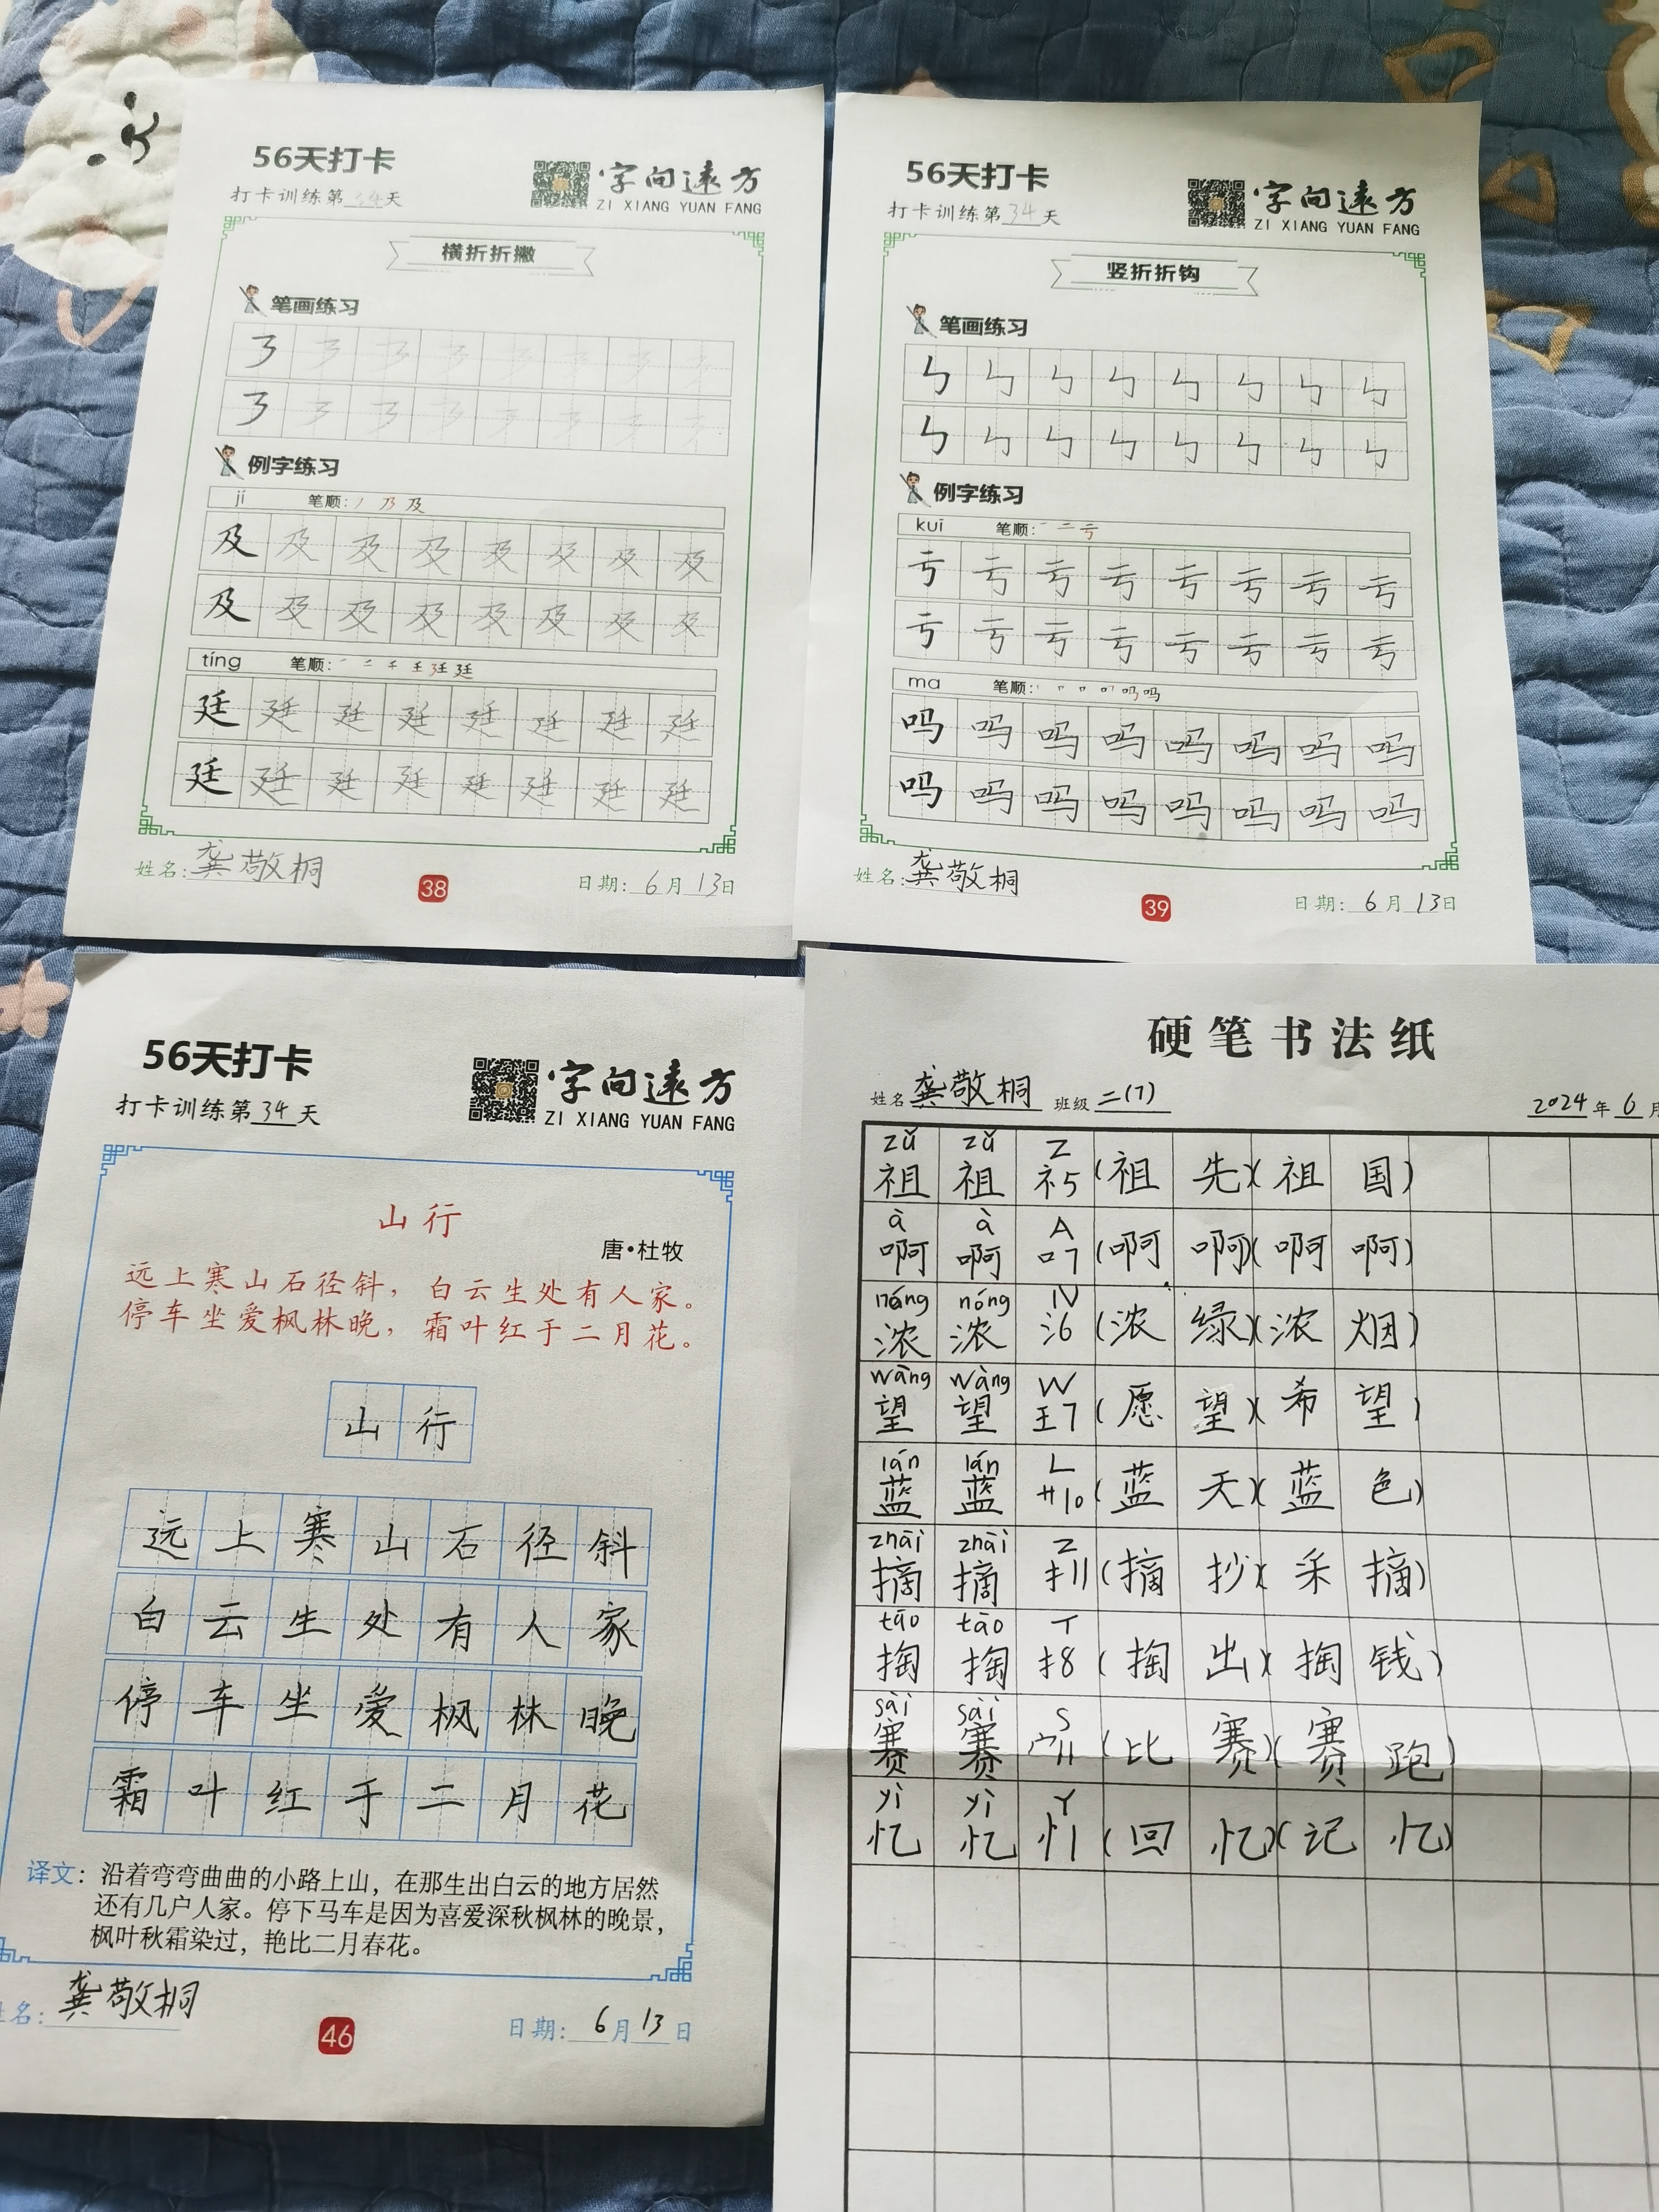 56天打卡
打卡训练第34天
字向远方
ZI XIANG YUAN FANG
横折折撇
笔画练习
例字练习
jí 笔顺: 丿 乃 及
及 及 及 及 及 及 及 及
及 及 及 及 及 及 及 及
tíng 笔顺:
廷 廷 廷 廷 廷 廷 廷 廷
廷 廷 廷 廷 廷 廷 廷 廷
姓名: 龚敬桐
38
日期: 6月13日
56天打卡
打卡训练第34天
字向远方
ZI XIANG YUAN FANG
竖折折钩
笔画练习
例字练习
kuī 笔顺: 一 二 亏
亏 亏 亏 亏 亏 亏 亏 亏
亏 亏 亏 亏 亏 亏 亏 亏
ma 笔顺:
吗 吗 吗 吗 吗 吗 吗 吗
吗 吗 吗 吗 吗 吗 吗 吗
姓名: 龚敬桐
39
日期: 6月13日
56天打卡
打卡训练第34天
字向远方
ZI XIANG YUAN FANG
山行
唐·杜牧
远上寒山石径斜，白云生处有人家。
停车坐爱枫林晚，霜叶红于二月花。
山行
远上寒山石径斜
白云生处有人家
停车坐爱枫林晚
霜叶红于二月花
译文：沿着弯弯曲曲的小路上山，在那生出白云的地方居然
还有几户人家。停下马车是因为喜爱深秋枫林的晚景，
枫叶秋霜染过，艳比二月春花。
姓名: 龚敬桐
46
日期: 6月13日
硬笔书法纸
姓名 龚敬桐 班级 二(7)
2024年6月
zǔ zǔ Z
祖 祖 礻5 (祖先)(祖国)
à à A
啊 啊 口7 (啊啊)(啊啊)
nóng nóng N
浓 浓 氵6 (浓绿)(浓烟)
wàng wàng W
望 望 王7 (愿望)(希望)
lán lán L
蓝 蓝 艹10 (蓝天)(蓝色)
zhāi zhāi Z
摘 摘 扌11 (摘抄)(采摘)
tāo tāo T
掏 掏 扌8 (掏出)(掏钱)
sài sài S
赛 赛 宀11 (比赛)(赛跑)
yì yì Y
忆 忆 忄1 (回忆)(记忆)